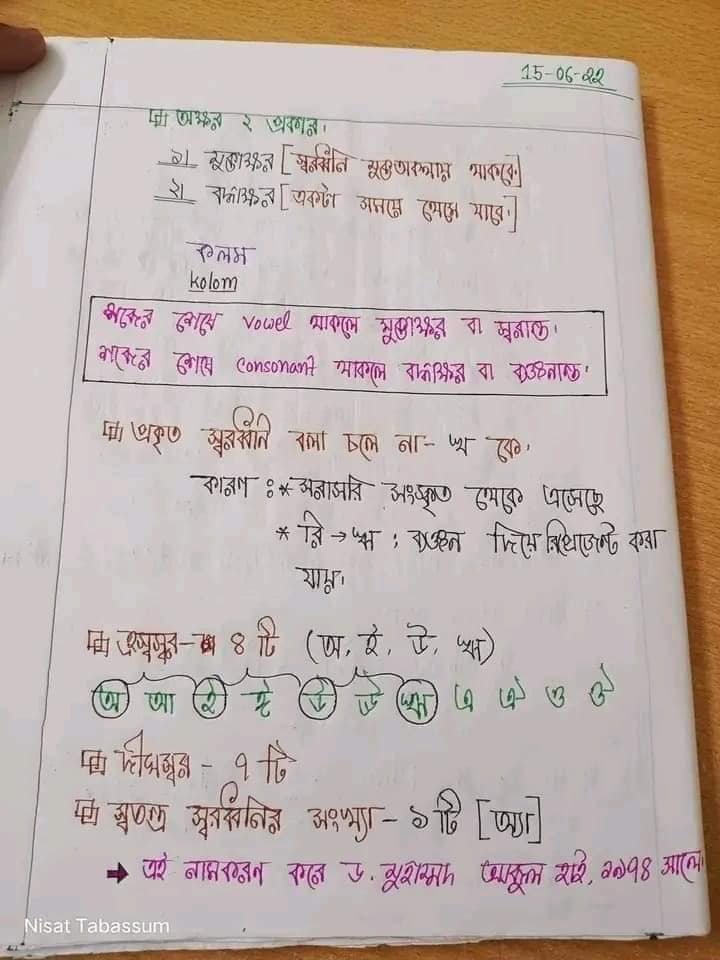 15-06-22
অক্ষর ২ প্রকার।
১। মুক্তাক্ষর [স্বরধ্বনি মুক্তঅবস্থায় থাকবে]
২। বদ্ধাক্ষর [একটা সময়ে থেমে যাবে।]
কলম
kolom
শব্দের শেষে vowel থাকলে মুক্তাক্ষর বা স্বরান্ত।
শব্দের শেষে consonant থাকলে বদ্ধাক্ষর বা ব্যঞ্জনান্ত।
প্রকৃত স্বরধ্বনি বলা চলে না- ঋ কে।
কারণ : * সরাসরি সংস্কৃত থেকে এসেছে
* রি → ঋ : ব্যঞ্জন দিয়ে রিপ্রেজেন্ট করা
যায়।
হ্রস্বস্বর - ৪ টি (অ, ই, উ, ঋ)
অ আ ই ঈ উ ঊ ঋ এ ঐ ও ঔ
দীর্ঘস্বর - ৭ টি
স্বতন্ত্র স্বরধ্বনির সংখ্যা - ১টি [অ্যা]
→ এই নামকরণ করেন ড. মুহাম্মদ আব্দুল হাই, ১৯৭৪ সালে।
Nisat Tabassum